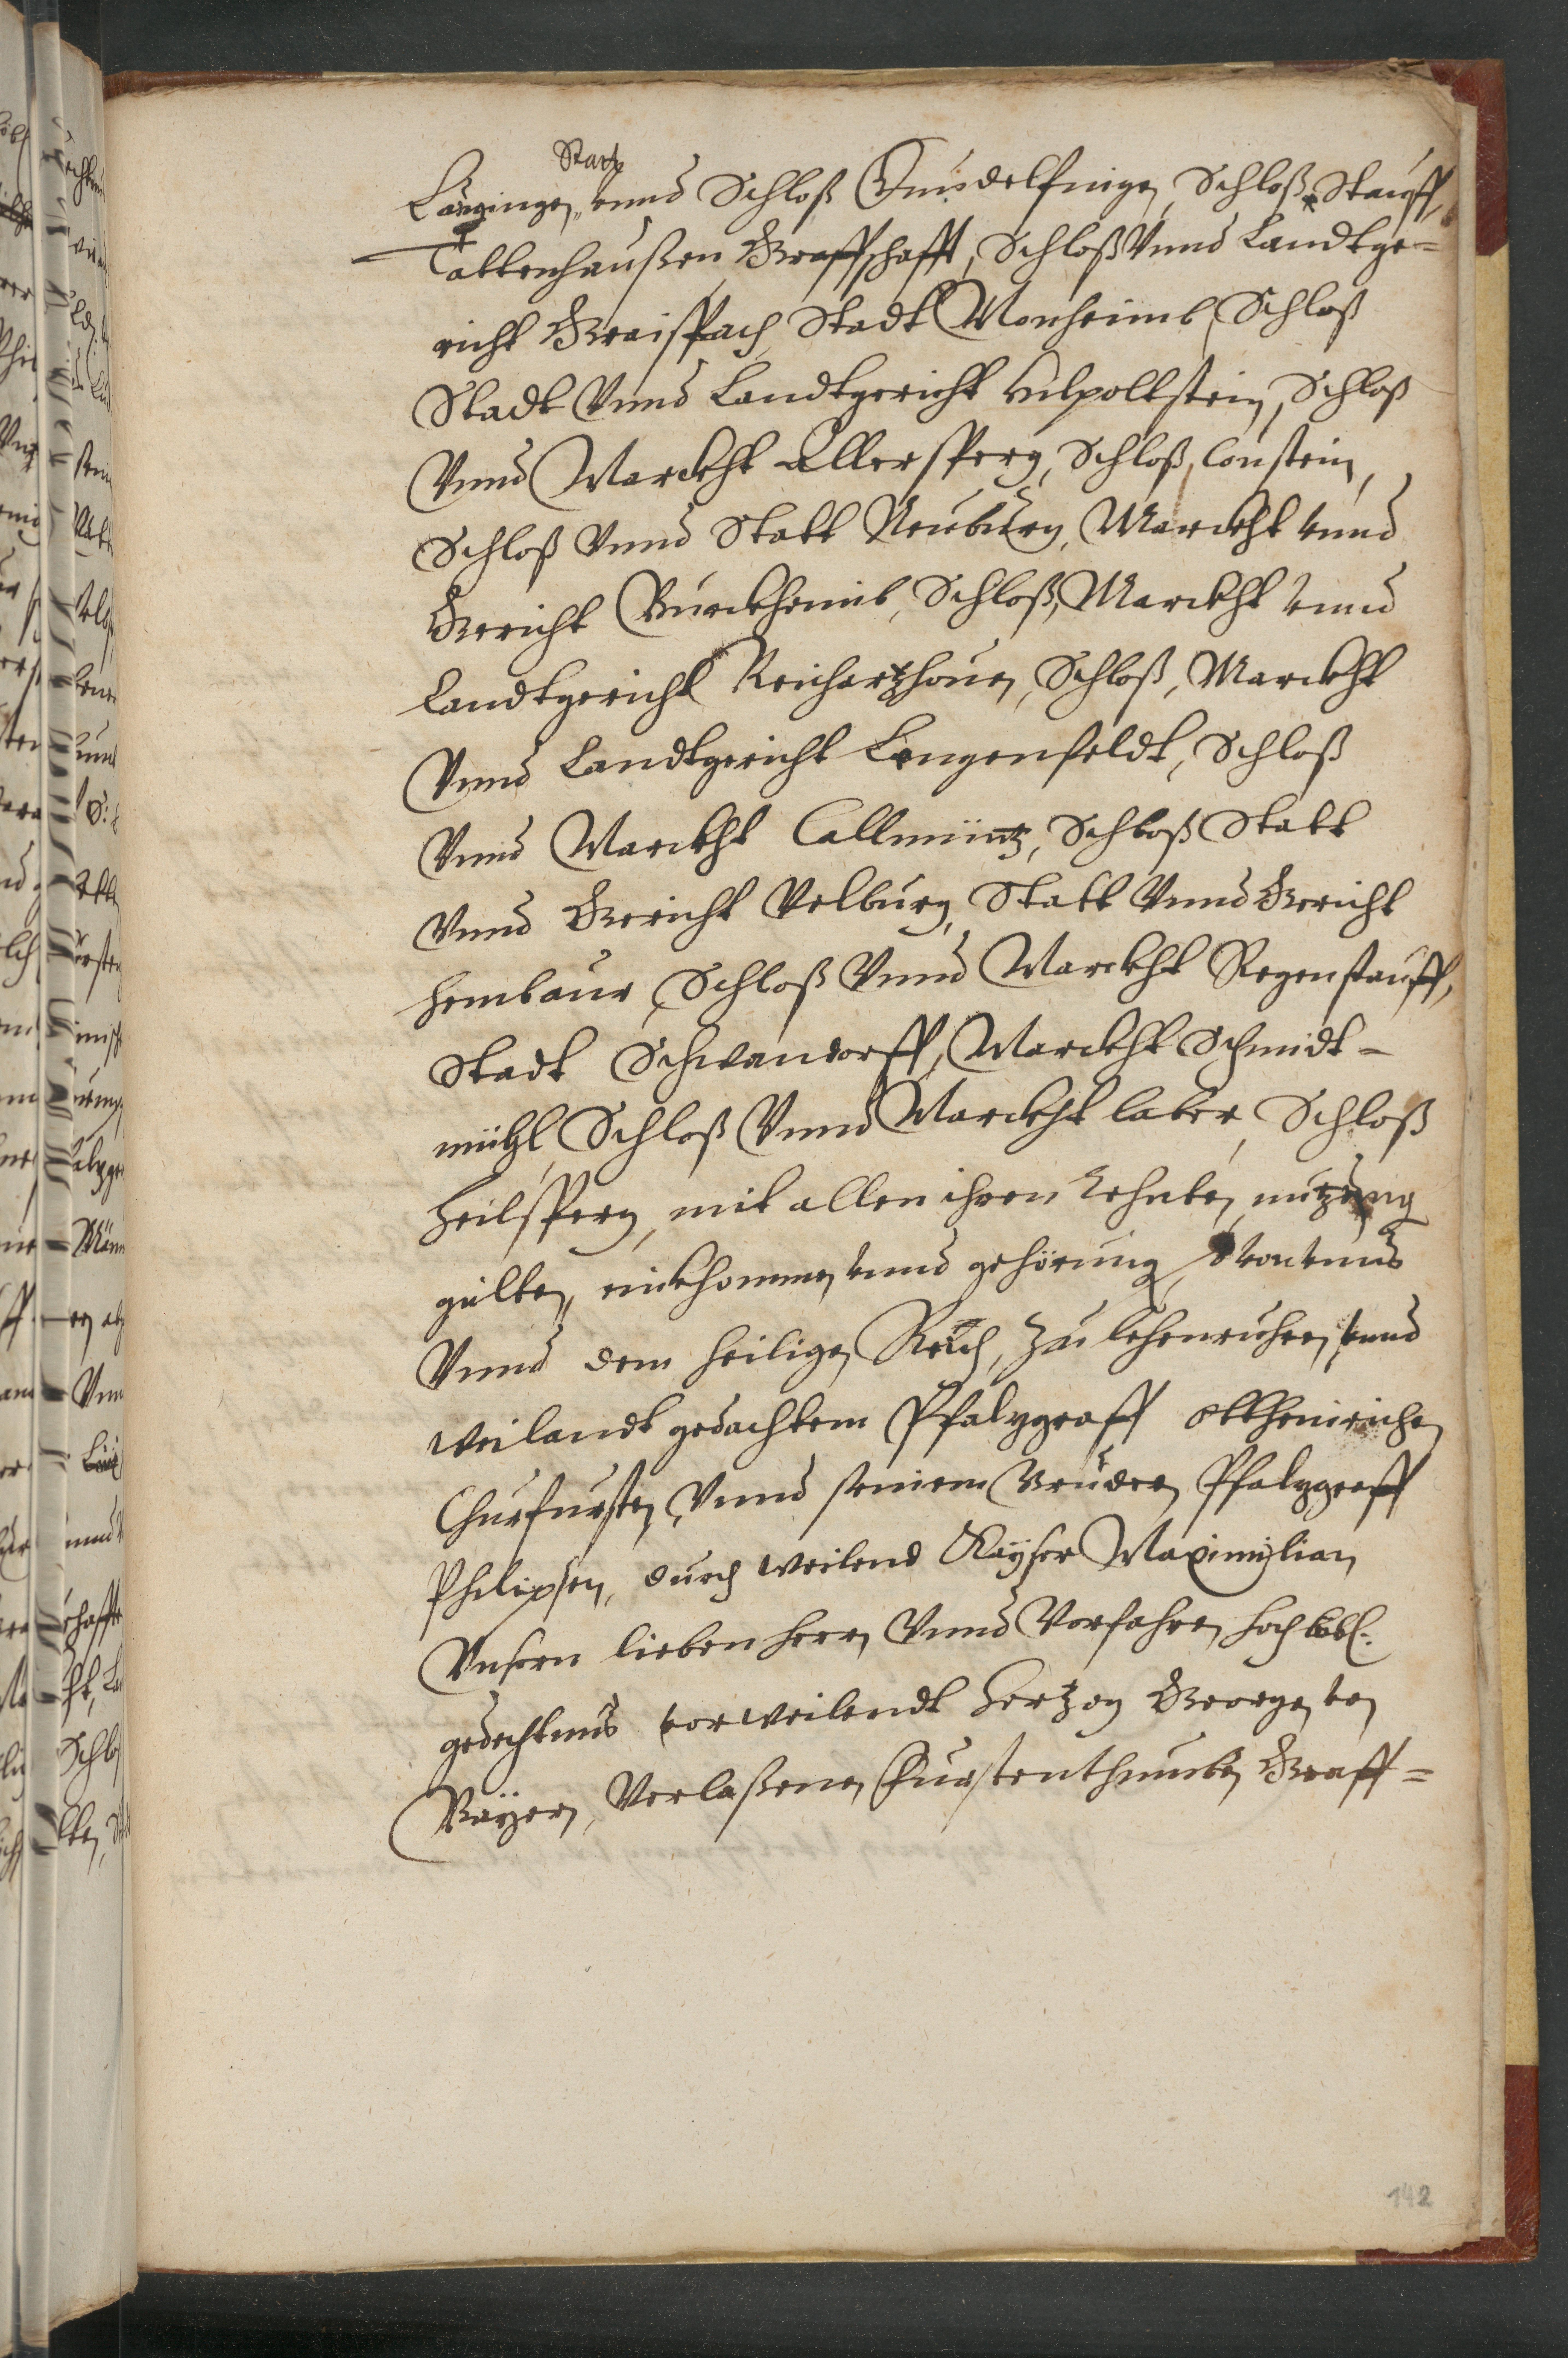 Statt
Lauginge, vnnd Schloß Gundelfinge, Schloß Stauff,
Tattenhaußen Graffschafft, Schloß Vnnd Landtge=
richt Graispach, Stadt Monheimb, Schloß
Stadt Vnnd Landtgericht Hilpoltstein, Schloß
Vnnd Marckht Allersperg, Schloß Constein,
Schloß Vnnd Statt Neuburg, Marckht vnnd
Gericht Burckheimb, Schloß, Marckht vnnd
Landtgericht Reichartzhouen, Schloß, Marckht
Vnnd Landtgericht Lengenfeldt, Schloß
Vnnd Marckht Callmüntz, Schloß Statt
Vnnd Gericht Velburg, Statt Vnnd Gericht
Hembaur, Schloß Vnnd Marckht Regenstauff,
Stadt Schwandorff, Marckht Schmidt=
mühl, Schloß Vnnd Marckht laber, Schloß
Heilsperg, mit allen ihren nutzung
gülten, einkhommen vnnd gehörung, Von vnns
Vnnd dem heiligen Reich, zu lehenruhren, vnnd
weilandt gedachtem Pfalzgraff Ottheinrichen
Churfursten, Vnnd seinem Bruder, Pfalzgraff
Philipsen, durch weilend Kayser Maximilian
Vnsern lieben herrn Vnnd Vorfahren hochlöbl:
gedechtnus vor weilendt Hertzog Georgen von
Bayern, Verlaßenen Furstenthumben Graff=
142